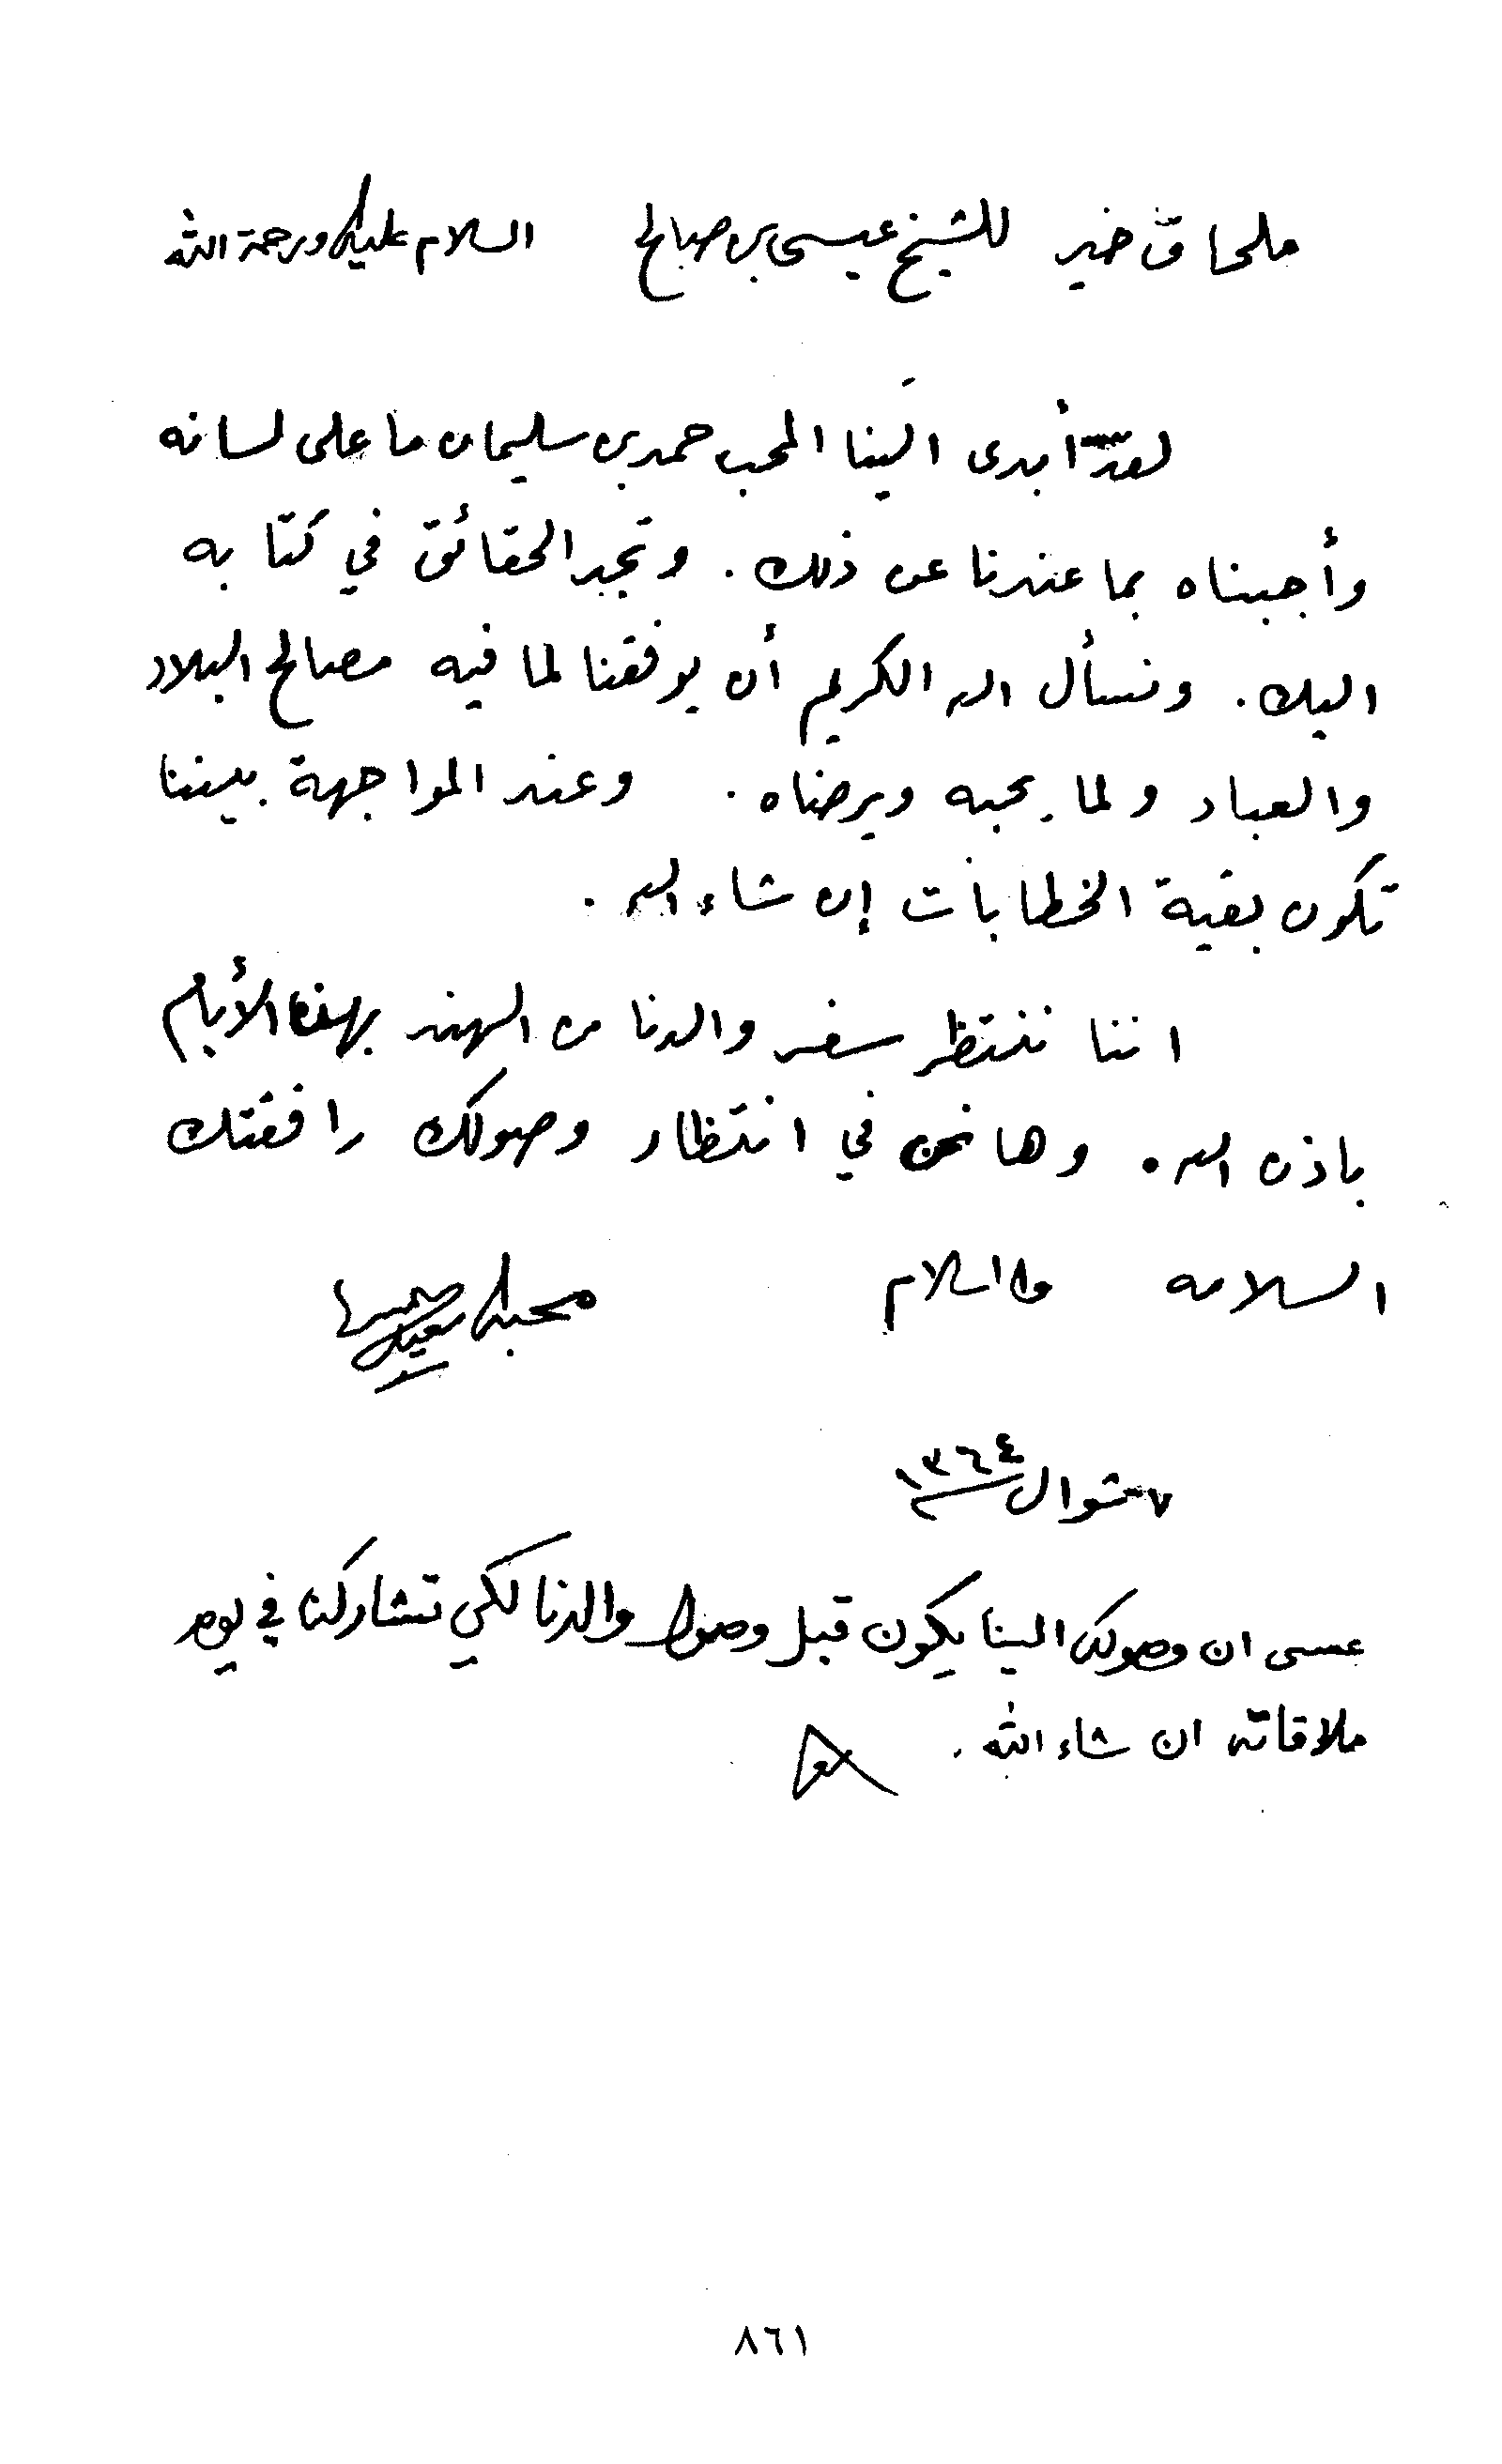 ملحاق خير للشيخ عيسى بن صالح السلام عليك ورحمة الله
لقد أبدى الينا المحب حمد بن سليمان ما على لسانه
وأجبناه بما عندنا عن ذلك . وتجد الحقائق في كتابه
اليك . ونسأل الله الكريم أن يوفقنا لما فيه مصالح البلاد
والعباد ولما يحبه ويرضاه . وعند المواجهة بيننا
تكون بقية الخطابات إن شاء الله .
اننا ننتظر سفر والدنا من الهند بهذه الأيام
باذن الله . وها نحن في انتظار وصولك رافقتك
السلامه والسلام محبك سعيد
٧ شوال ١٣٦٤
عسى ان وصولك الينا يكون قبل وصول والدنا لكي تشاركنا في يوم
ملاقاته ان شاء الله .
٨٦١